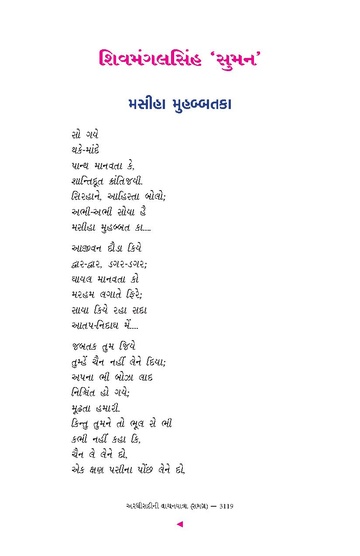 શિવમંગલસિંહ ‘સુમન’
મસીહા મુહબ્બતકા
સો ગયે
થકે-માંદે
પાન્થ માનવતા કે,
શાન્તિદૂત ક્રાંતિજયી.
સિરહાને, આહિસ્તા બોલો;
અભી-અભી સોયા હૈ
મસીહા મુહબ્બત કા....
આજીવન દૌડા કિયે
દ્વાર-દ્વાર, ડગર-ડગર;
ઘાયલ માનવતા કો
મરહમ લગાતે ફિરે;
સાયા કિયે રહા સદા
આતપ-નિદાઘ મેં....
જબતક તુમ જિયે
તુમ્હેં ચૈન નહીં લેને દિયા;
અપના ભી બોઝા લાદ
નિશ્ચિંત હો ગયે;
મૂઢતા હમારી.
કિન્તુ તુમને તો ભૂલ સે ભી
કભી નહીં કહા કિ,
ચૈન લે લેને દો,
એક ક્ષણ પસીના પોંછ લેને દો,
અરધીસદીની વાચનયાત્રા (સમગ્ર) — 3119